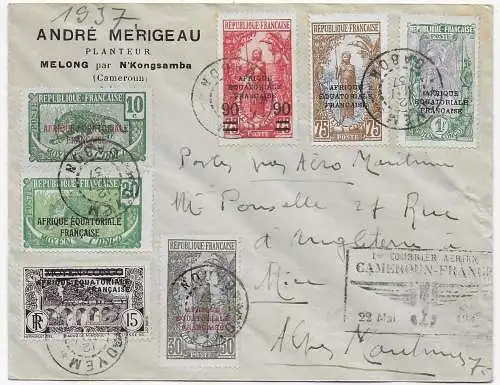 1937.
ANDRÉ MERIGEAU
PLANTEUR
MELONG par N'KONGSAMBA
(Cameroun)
RÉPUBLIQUE FRANÇAISE
AFRIQUE
ÉQUATORIALE
FRANÇAISE
90 90
25
POSTES
RÉPUBLIQUE FRANÇAISE
AFRIQUE
ÉQUATORIALE
FRANÇAISE
75 75
POSTES
RÉPUBLIQUE FRANÇAISE
AFRIQUE
ÉQUATORIALE
FRANÇAISE
1
RÉPUBLIQUE FRANÇAISE
10
c
AFRIQUE ÉQUATORIALE
FRANÇAISE
MOYEN CONGO
RÉPUBLIQUE FRANÇAISE
20
AFRIQUE ÉQUATORIALE
FRANÇAISE
MOYEN CONGO
AFRIQUE ÉQUATORIALE
FRANÇAISE
RF
15
POSTES
OYEM
RÉPUBLIQUE FRANÇAISE
AFRIQUE
ÉQUATORIALE
FRANÇAISE
30 30
Postes par Aéro Maritime
Mr Ponselle 27 Rue
d'Angleterre
Nice
Alpes Maritimes
1er COURRIER AÉRIEN
CAMEROUN-FRANCE
22 Mai